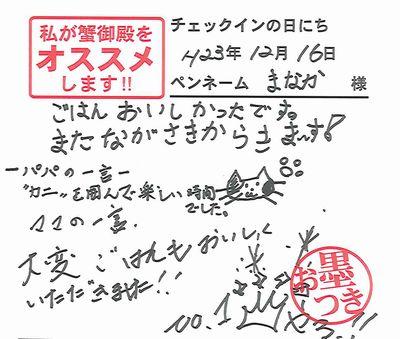 私が蟹御殿を
オススメ
します!!
チェックインの日にち
H23年 12月 16日
ペンネーム まなか 様
ごはん おいしかったです。
また ながさきからきまーす!
ーパパの一言ー
"カニ"を囲んで楽しい時間
でした。
ママの一言.
大変 ごはんも おいしく
いただきました!!
お墨
つき
NO.1